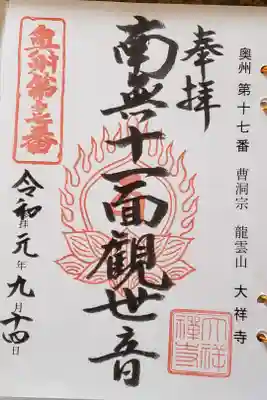 奥州 第十七番 曹洞宗 龍雲山 大祥寺
奉拝
南無十一面觀世音
奥州第十七番
令和元年九月十四日
大祥禅寺